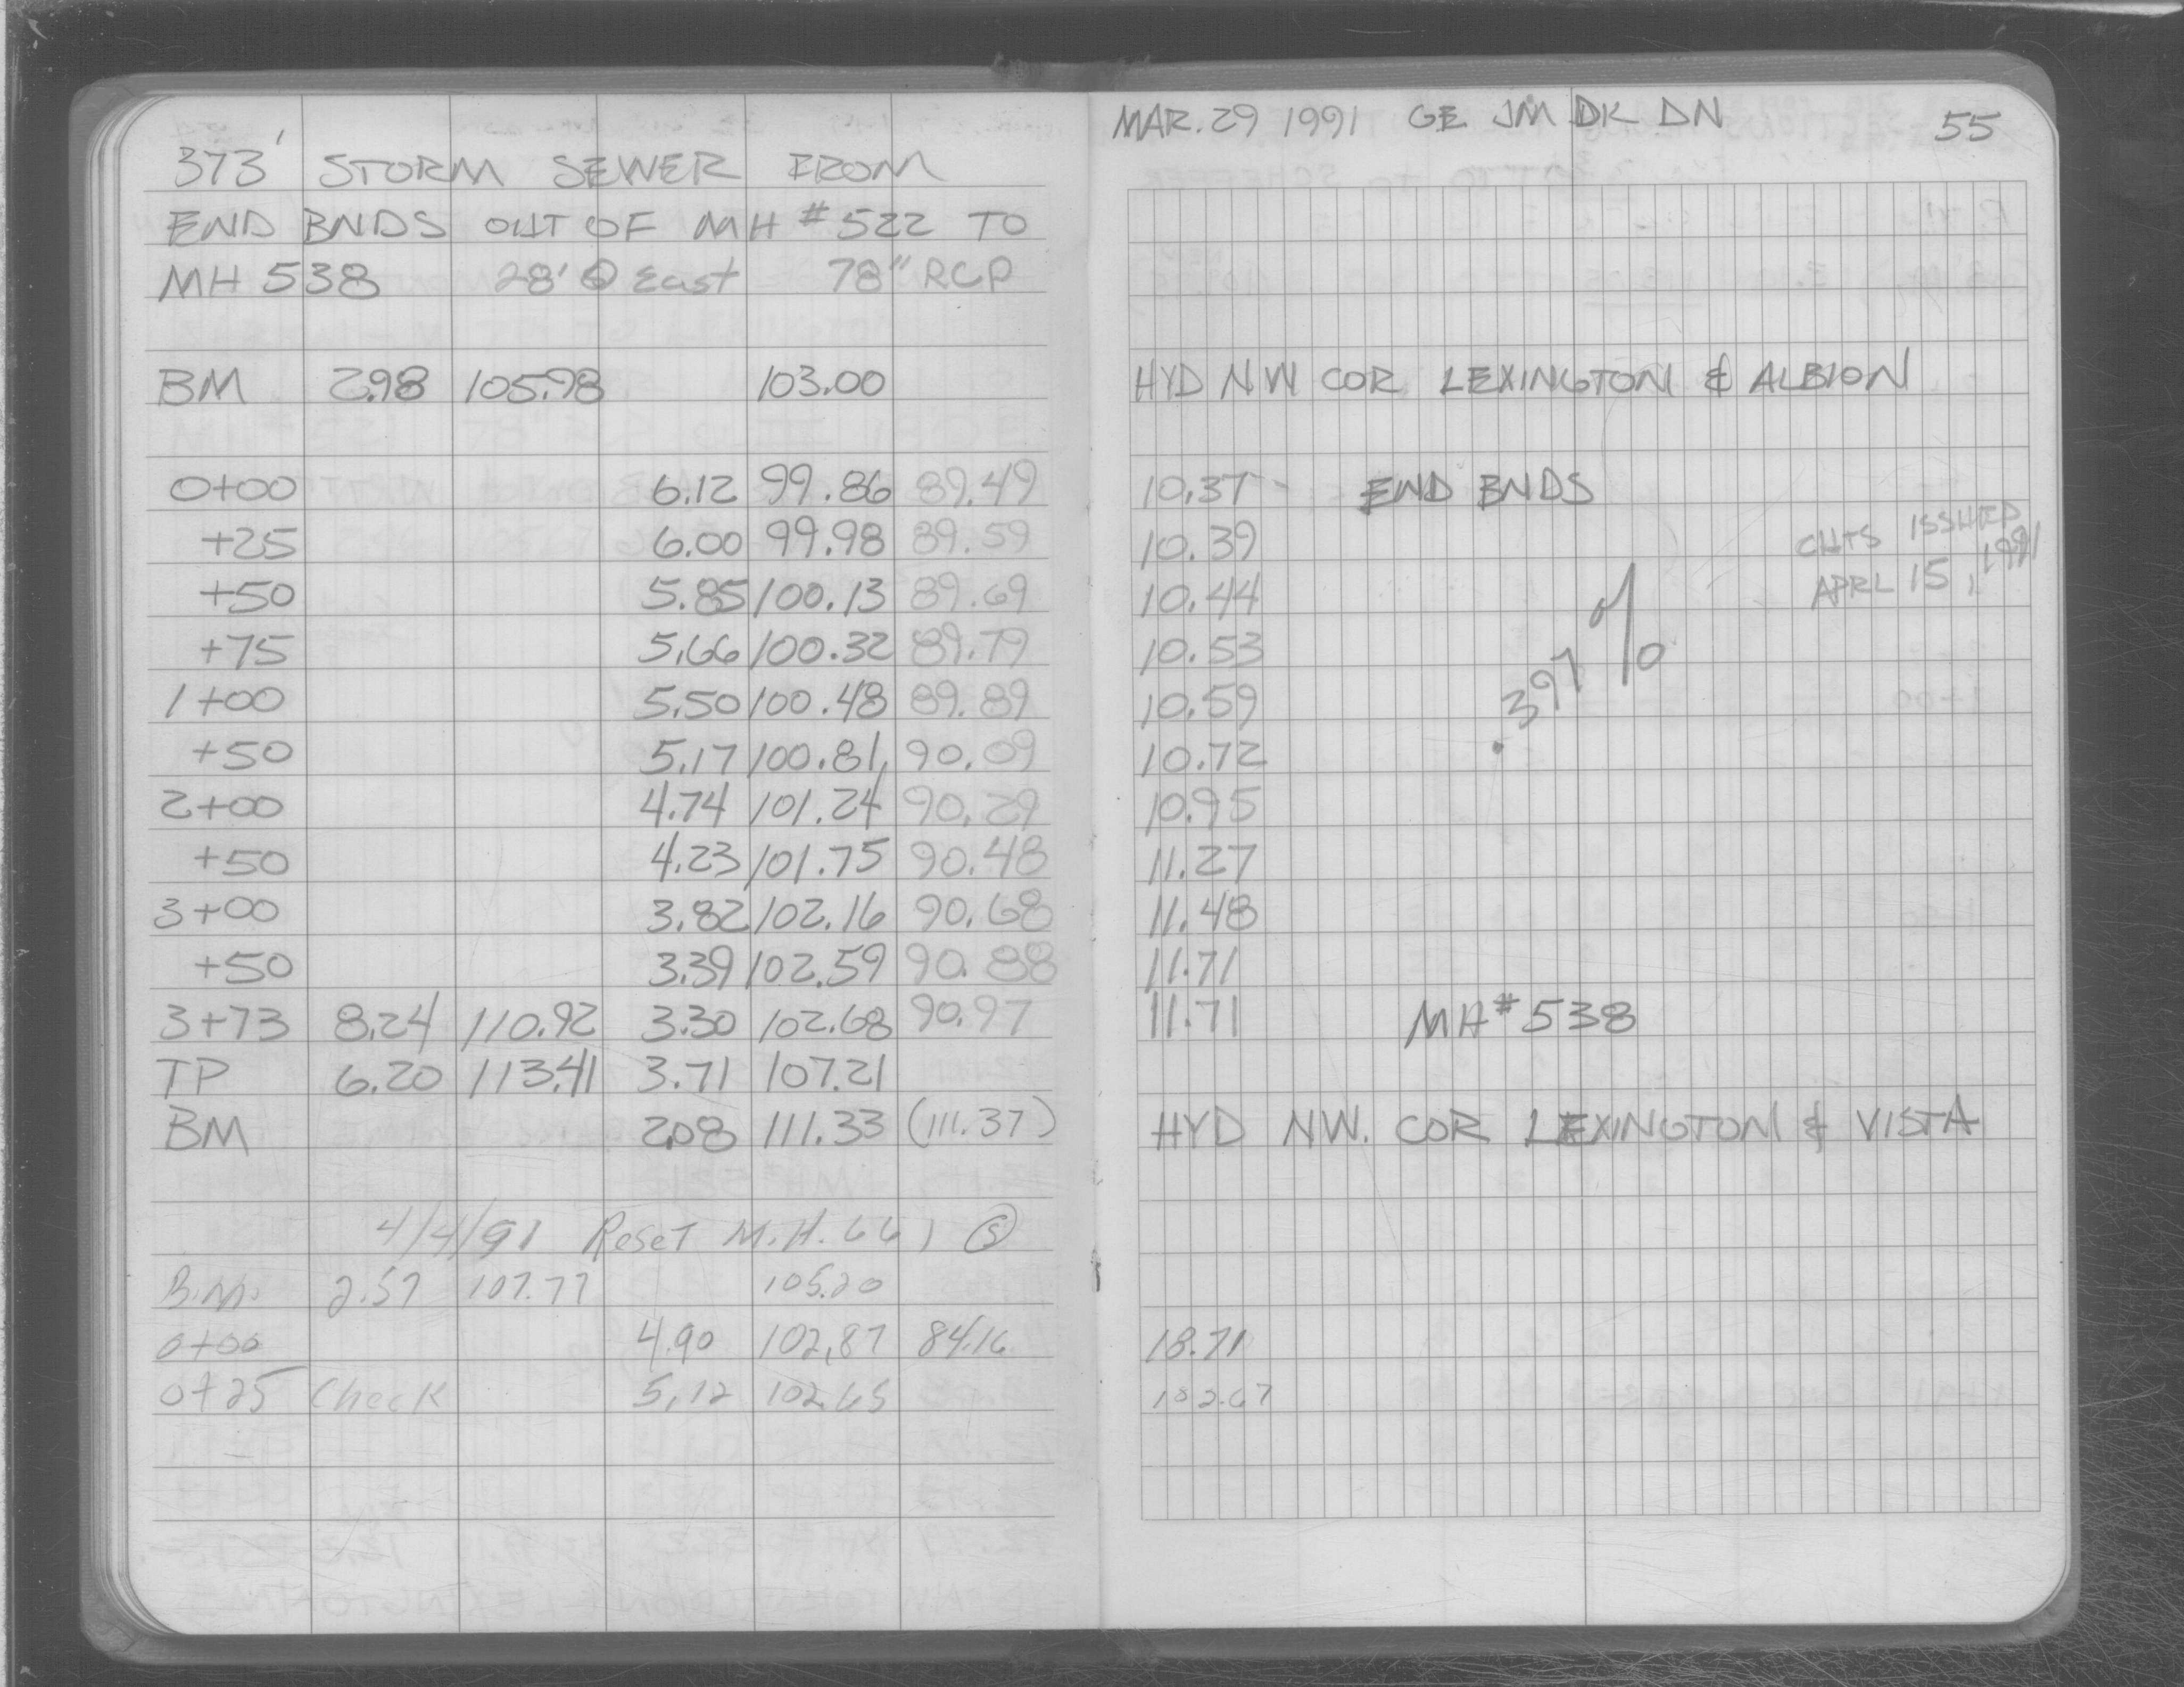 MAR. 29 1991 GE JM DK DN 55
373' STORM SEWER FROM
END BNDS OUT OF MH #522 TO
MH 538 28' @ East 78" RCP
BM 2.98 105.98 103.00 HYD NW COR LEXINGTON & ALBION
0+00 6.12 99.86 89.49 10.37 END BNDS
+25 6.00 99.98 89.59 10.39
CUTS ISSUED
APRL 15, 1991
+50 5.85 100.13 89.69 10.44
+75 5.66 100.32 89.79 10.53
.397 %
1+00 5.50 100.48 89.89 10.59
+50 5.17 100.81 90.09 10.72
2+00 4.74 101.24 90.29 10.95
+50 4.23 101.75 90.48 11.27
3+00 3.82 102.16 90.68 11.48
+50 3.39 102.59 90.88 11.71
3+73 8.24 110.92 3.30 102.68 90.97 11.71 MH #538
TP 6.20 113.41 3.71 107.21
BM 2.08 111.33 (111.37) HYD NW. COR LEXINGTON & VISTA
4/4/91 Reset M.H. 661 Ⓢ
B.M. 2.57 107.77 105.20
0+00 4.90 102.87 84.16 18.71
0+25 Check 5.12 102.65 102.67